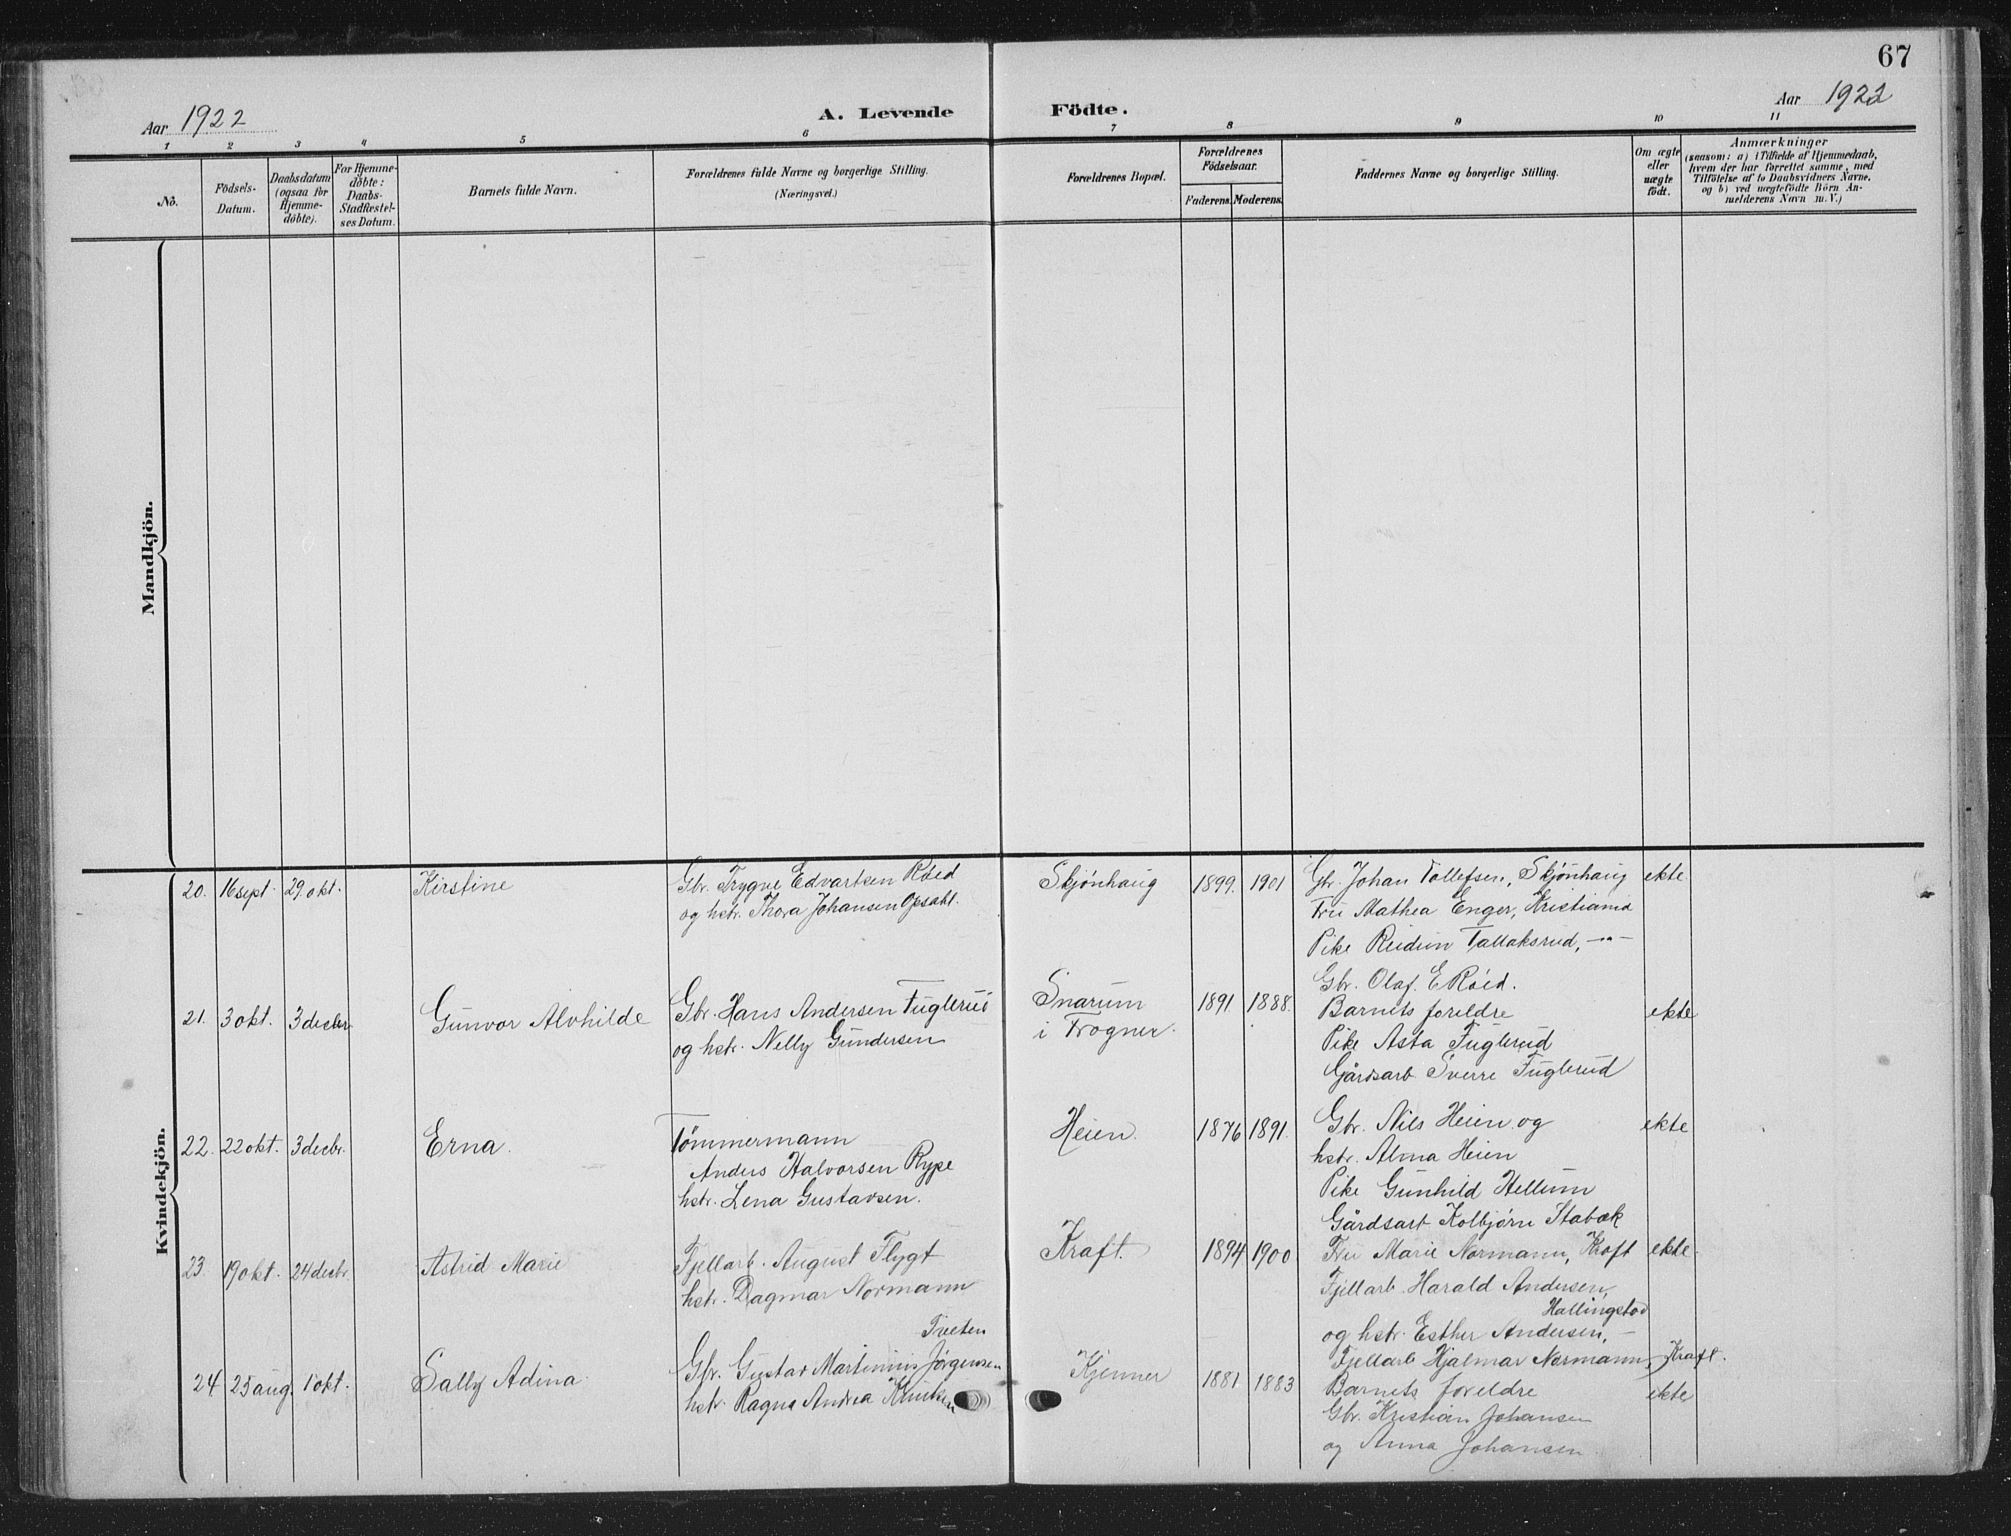 67
Aar 1922
A. Levende Födte.
Aar 1922
1 2 3 4 5 6 7 8 9 10 11
No.
Födsels-
Datum.
Daabsdatum
(ogsaa for
Hjemme-
döbte).
For Hjemme-
döbte:
Daabs-
Stadfæstel-
ses Datum.
Barnets fulde Navn.
Forældrenes fulde Navne og borgerlige Stilling.
(Næringsvei.)
Forældrenes Bopæl.
Forældrenes
Födselsaar.
Faderens. Moderens.
Faddernes Navne og borgerlige Stilling.
Om ægte
eller
uægte
födt.
Anmærkninger
(saasom: a) i Tilfælde af Hjemmedaab,
hvem der har forrettet samme, med
Tilföielse af to Daabsvidners Navne,
og b) ved uægtefödte Börn An-
melderens Navn m. V.)
Mandkjön.
Kvindekjön.
20. 16 sept. 29. okt. Kirstine
Gbr. Trygve Edvartsen Röed
og hstr. Thora Johansen Opsahl.
Skjønhaug 1899. 1901
Gbr. Johan Tollefsen, Skjønhaug ekte
Fru Mathea Enger, Kristiania
Pike Reidun Tallaksrud, —"—
Gbr. Olaf E Röed.
21. 3 okt. 3 decbr. Gunvor Alvhilde
Gbr. Hans Andersen Fuglerud
og hstr. Nelly Gundersen
Snarum
i Frogner.
1891. 1888.
Barnets foreldre ekte
Pike Asta Fuglerud
Gårdsarb Sverre Fuglerud
22. 22 okt. 3 decbr. Erna.
Tömmermann
Anders Halvorsen Rype
hstr. Lena Gustavsen.
Heien. 1876 1891.
Gbr. Nils Heien og ekte
hstr. Alma Heien
Pike Gunhild Hellum
Gårdsarb Kolbjørn Stabæk
23. 19 okt. 24 decbr. Astrid Marie
Fjellarb. August Flygt
hstr. Dagmar Normann
Kraft. 1894 1900
Fru Marie Normann, Kraft ekte
Fjellarb. Harald Andersen,
Hallingstad
og hstr. Esther Andersen, —
Fjellarb Hjalmar Normann, Kraft.
24 25 aug 1 okt. Sally Adina
Tveten
Gbr. Gustav Martinius Jörgensen
hstr. Ragna Andrea
Kjenner 1881 1883
Barnets foreldre ekte
Gbr. Kristian Johansen
og Anna Johansen.